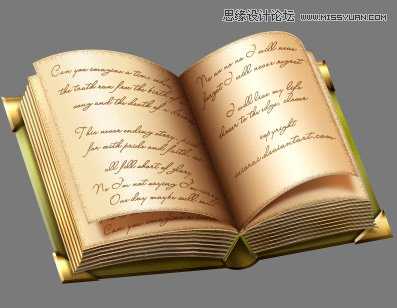 思缘设计论坛 WWW.MISSYUAN.COM
Can you imagine a time when
the truth ran free the birth of
song and the death of a
This never ending story
for with pride and faith
all fall short of glory
No I'm not saying I'm sorry
One day maybe we'll
Can you imagine
No no no no I will never
forget I will never regret
I will live my life
closer to the edge, close
copyright
.deviantart.com